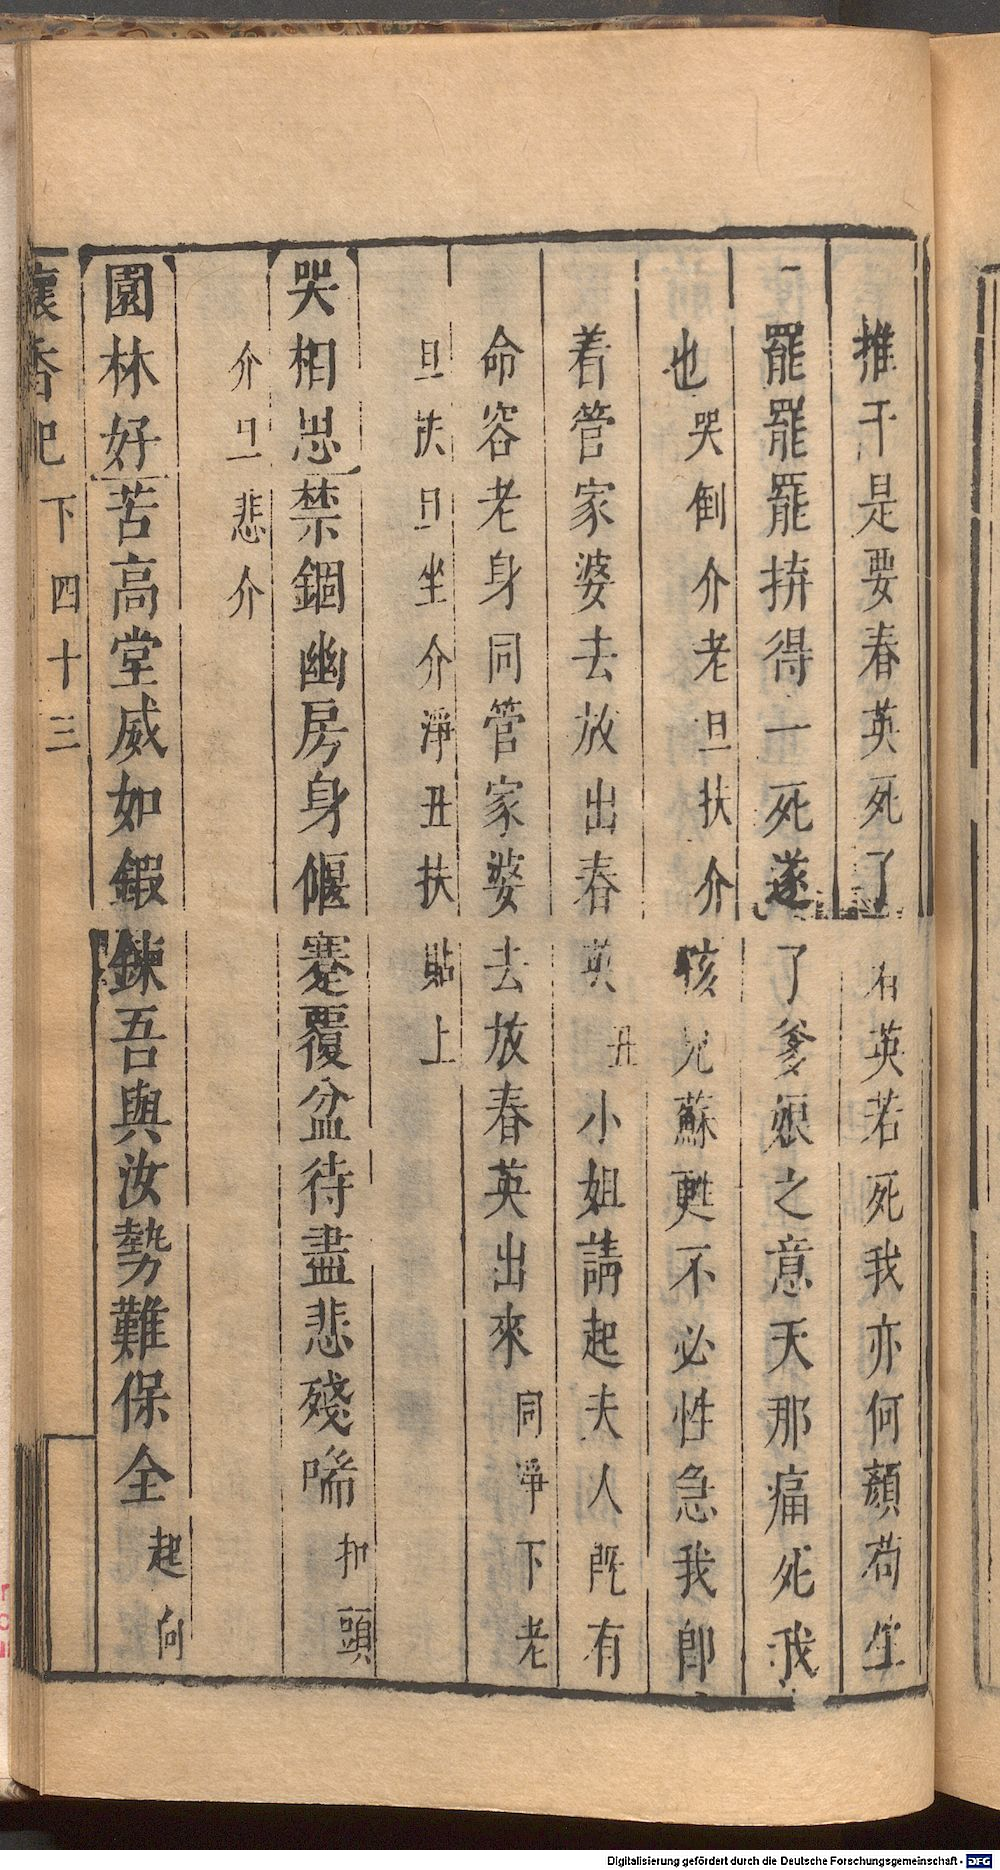 推干是要春英死了 英若死我亦何顏苟生
罷罷罷拚得一死遂了爹娘之意天那痛死我
也哭倒介老旦扶介 孩兒蘇甦不必性急我即
着管家婆去放出春英丑小姐請起夫人既有
命容老身同管家婆去放春英出來同淨下老
旦扶旦坐介淨丑扶貼上
哭相思禁錮幽房身偃蹇覆盆待盡悲殘喘扣頭
介旦悲介
園林好苦高堂威如鍛鍊吾與汝勢難保全起向
懷香記 下 四十三
Digitalisierung gefördert durch die Deutsche Forschungsgemeinschaft - DFG